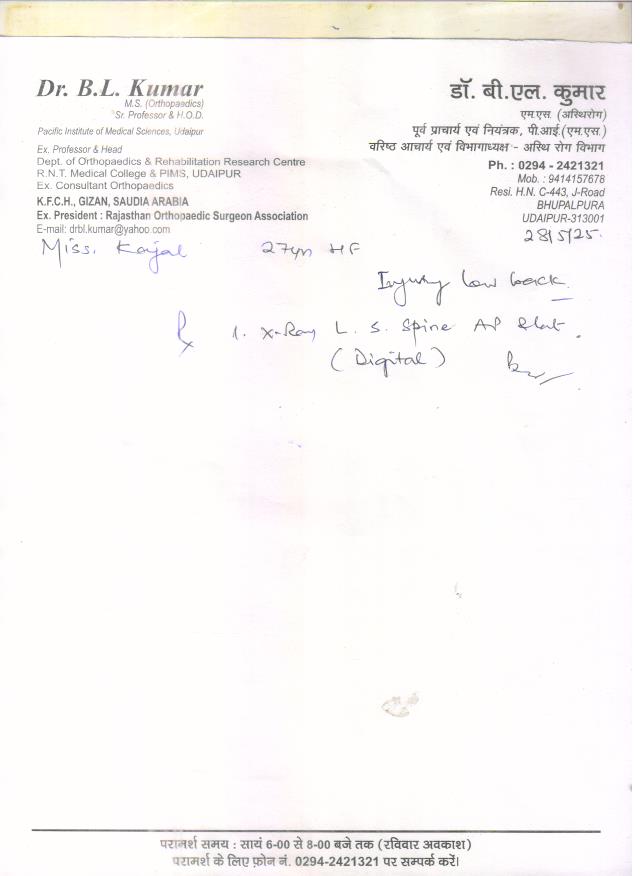 Dr. B.L. Kumar
M.S. (Orthopaedics)
Sr. Professor & H.O.D.
Pacific Institute of Medical Sciences, Udaipur
Ex. Professor & Head
Dept. of Orthopaedics & Rehabilitation Research Centre
R.N.T. Medical College & PIMS, UDAIPUR
Ex. Consultant Orthopaedics
K.F.C.H., GIZAN, SAUDIA ARABIA
Ex. President : Rajasthan Orthopaedic Surgeon Association
E-mail: drbl.kumar@yahoo.com
डॉ. बी.एल. कुमार
एम.एस. (अस्थिरोग)
पूर्व प्राचार्य एवं नियंत्रक, पी.आई.(एम.एस.)
वरिष्ठ आचार्य एवं विभागाध्यक्ष - अस्थि रोग विभाग
Ph. : 0294 - 2421321
Mob. : 9414157678
Resi. H.N. C-443, J-Road
BHUPALPURA
UDAIPUR-313001
28/5/25.
Miss. Kajal 27yrs HF
Injury low back
℞ 1. X-Ray L. S. Spine AP & Lat.
(Digital)
परामर्श समय : सायं 6-00 से 8-00 बजे तक (रविवार अवकाश)
परामर्श के लिए फ़ोन नं. 0294-2421321 पर सम्पर्क करें।